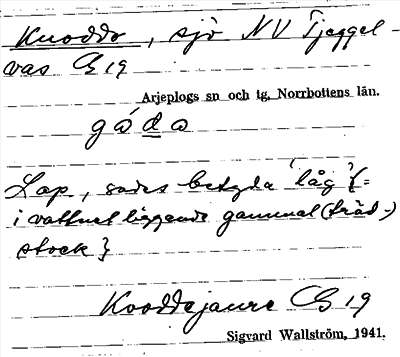 Kuoddo, sjö NV Tjeggel-
vas G 19
Arjeplogs sn och tg, Norrbottens län.
góda
Lap, sades betyda 'låg' {=
i vattnet liggande gammal (träd-)
stock}
Kooddejaure G 19
Sigvard Wallström, 1941.